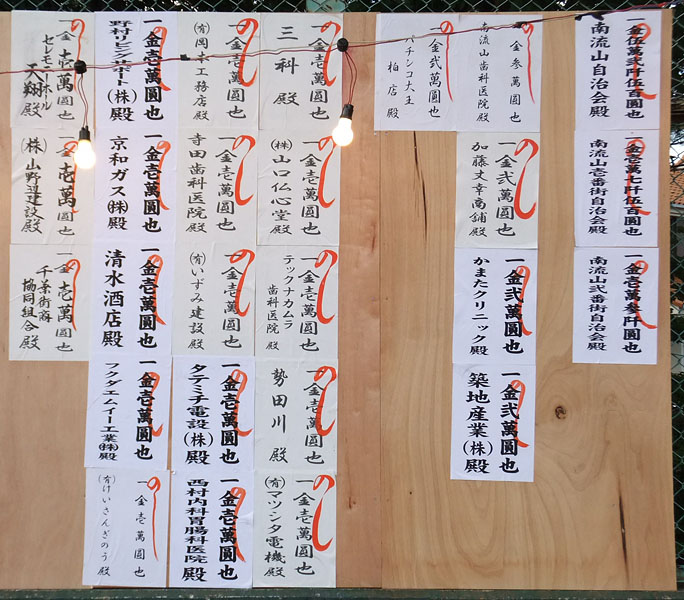 のし
一金伍萬弐阡伍百圓也
南流山自治会殿
のし
一金壱萬七阡伍百圓也
南流山壱番街自治会殿
のし
一金壱萬参阡圓也
南流山弐番街自治会殿
のし
金参萬圓也
南流山歯科医院殿
のし
一金弐萬圓也
加藤丈幸商舗殿
のし
一金弐萬圓也
かまたクリニック殿
のし
一金弐萬圓也
築地産業(株)殿
のし
金弐萬圓也
パチンコ大王
柏店殿
のし
一金壱萬圓也
三科殿
のし
一金壱萬圓也
(株)山口仏心堂殿
のし
一金壱萬圓也
テックナカムラ
歯科医院殿
のし
一金壱萬圓也
勢田川殿
のし
一金壱萬圓也
(有)マツシタ電機殿
のし
一金壱萬圓也
(有)岡本工務店殿
のし
一金壱萬圓也
寺田歯科医院殿
のし
一金壱萬圓也
(有)いずみ建設殿
のし
一金壱萬圓也
タテミチ電設(株)殿
のし
一金壱萬圓也
西村内科胃腸科医院殿
のし
一金壱萬圓也
野村リビングサポート(株)殿
のし
一金壱萬圓也
京和ガス(株)殿
のし
一金壱萬圓也
清水酒店殿
のし
一金壱萬圓也
フクダエムイー工業(株)殿
のし
一金壱萬圓也
(有)けいさんぎのう殿
のし
一金壱萬圓也
セレモニーホール
天翔殿
のし
一金壱萬圓也
(株)山野辺建設殿
のし
一金壱萬圓也
千葉街商
協同組合殿